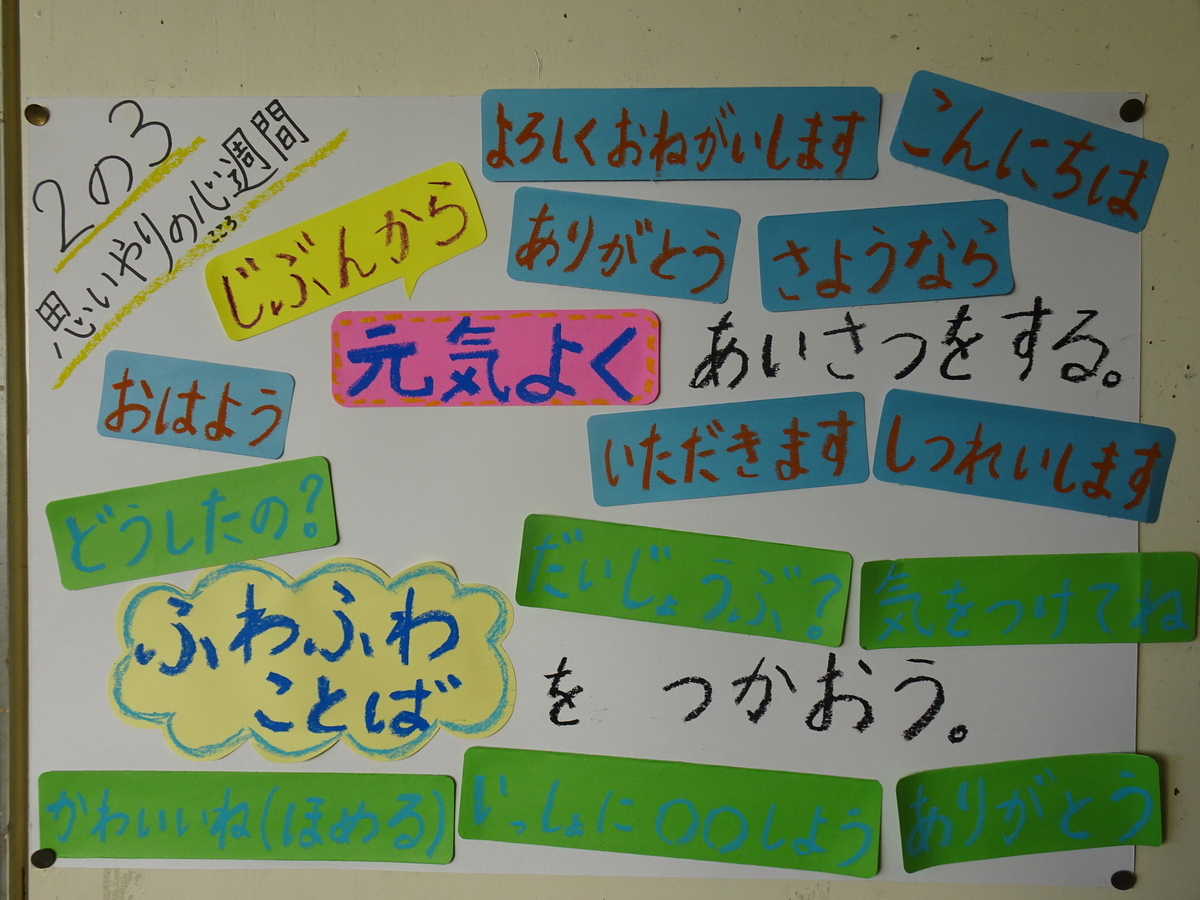 2の3
思いやりの心週間
こころ
よろしくおねがいします
こんにちは
じぶんから
ありがとう
さようなら
元気よく
あいさつをする。
おはよう
いただきます
しつれいします
どうしたの?
だいじょうぶ?
気をつけてね
ふわふわ
ことば
を つかおう。
かわいいね(ほめる)
いっしょに〇〇しよう
ありがとう